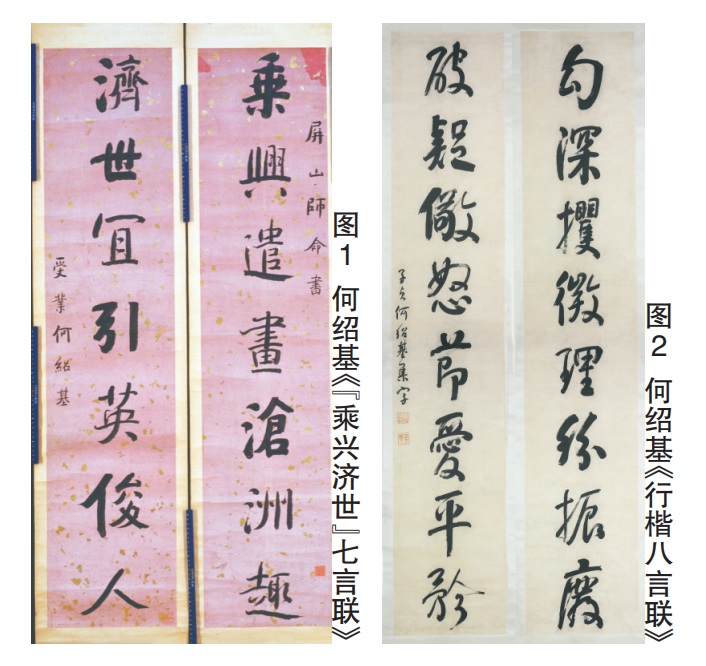 乘興遣畫滄洲趣
屏山師命書
濟世冝引英俊人
受業何紹基
图1 何绍基《『乘兴济世』七言联》
勾深攫微理紛振廢
破疑儆怒節愛平矜
子貞何紹基集字
图2 何绍基《行楷八言联》